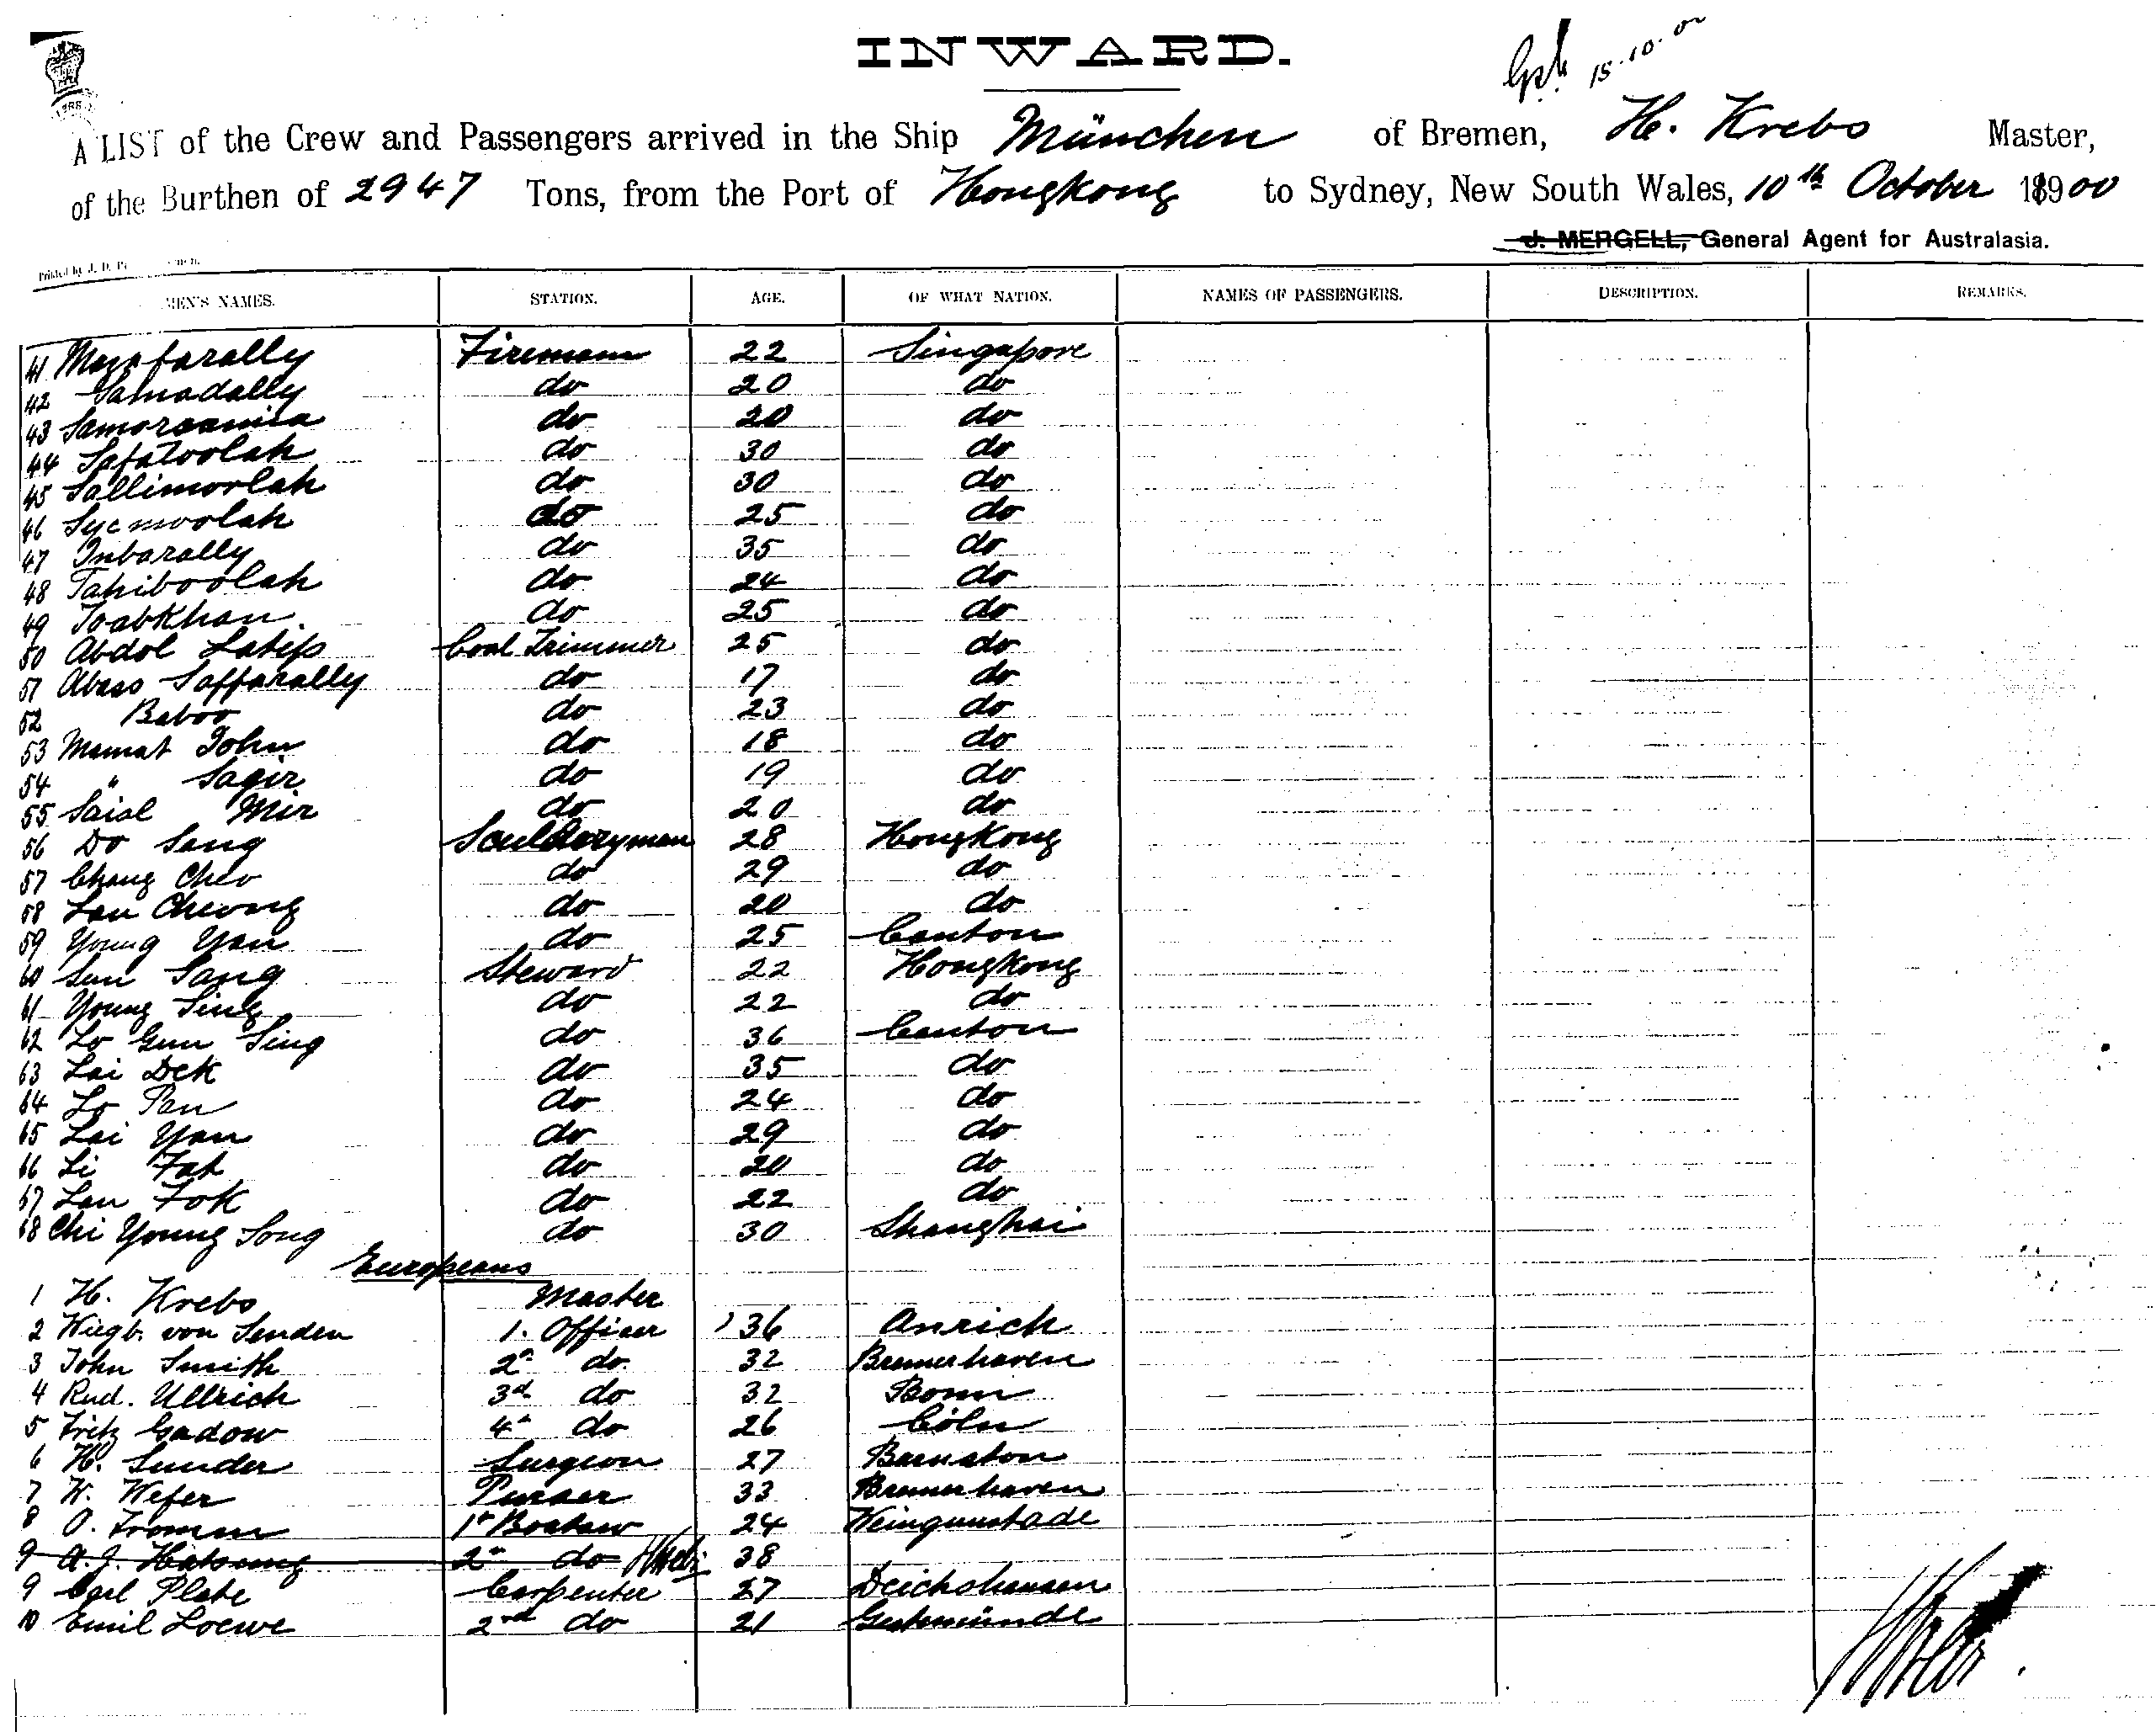 INWARD.
15.10.00
A LIST of the Crew and Passengers arrived in the Ship München of Bremen, H. Krebs Master,
of the Burthen of 2947 Tons, from the Port of Hongkong to Sydney, New South Wales, 10th October 1900
J. MERGELL, General Agent for Australasia.
Printed by J. D.
MEN'S NAMES. STATION. AGE. OF WHAT NATION. NAMES OF PASSENGERS. DESCRIPTION. REMARKS.
41 Mozafarally Fireman 22 Singapore
42 Samadally do 20 do
43 do 20 do
44 Safatoolah do 30 do
45 Sallimoolah do 30 do
46 Sycmoolah do 25 do
47 Inbarally do 35 do
48 Tahiboolah do 24 do
49 Joabkhan. do 25 do
50 Abdol Latip Coal Trimmer 25 do
51 Abass Saffarally do 17 do
52 Baboo do 23 do
53 Mamat John do 18 do
54 " Sagir do 19 do
55 Saisl Mir do 20 do
56 Do Sang Sculleryman 28 Hongkong
57 Chang Cheo do 29 do
58 Lau Cheong do 20 do
59 Young Yan do 25 Canton
60 Sun Sang Steward 22 Hongkong
61 Young Sing do 22 do
62 Lo Gun Sing do 36 Canton
63 Lai Dek do 35 do
64 Lo Pan do 24 do
65 Lai Yan do 29 do
66 Li Fat do 20 do
67 Lau Fok do 22 do
68 Chi Young Song do 30 Shanghai
Europeans
1 H. Krebs Master
2 Wiegb. von Senden 1. Officer 36 Anrich
3 John Smith 2n do. 32 Bremerhaven
4 Rud. Ullrich 3d do 32 Bonn
5 Fritz Gadow 4n do 26 Cöln
6 H. Sunder Surgeon 27 Barnston
7 W. Wefer Purser 33 Bremerhaven
8 O. Fromm 1t Boatsw 24
9 A. J. 2n do 38
9 Carl Plate Carpenter 27 Deichshausen
10 Emil Loewe 2nd do 21 Gestemünde